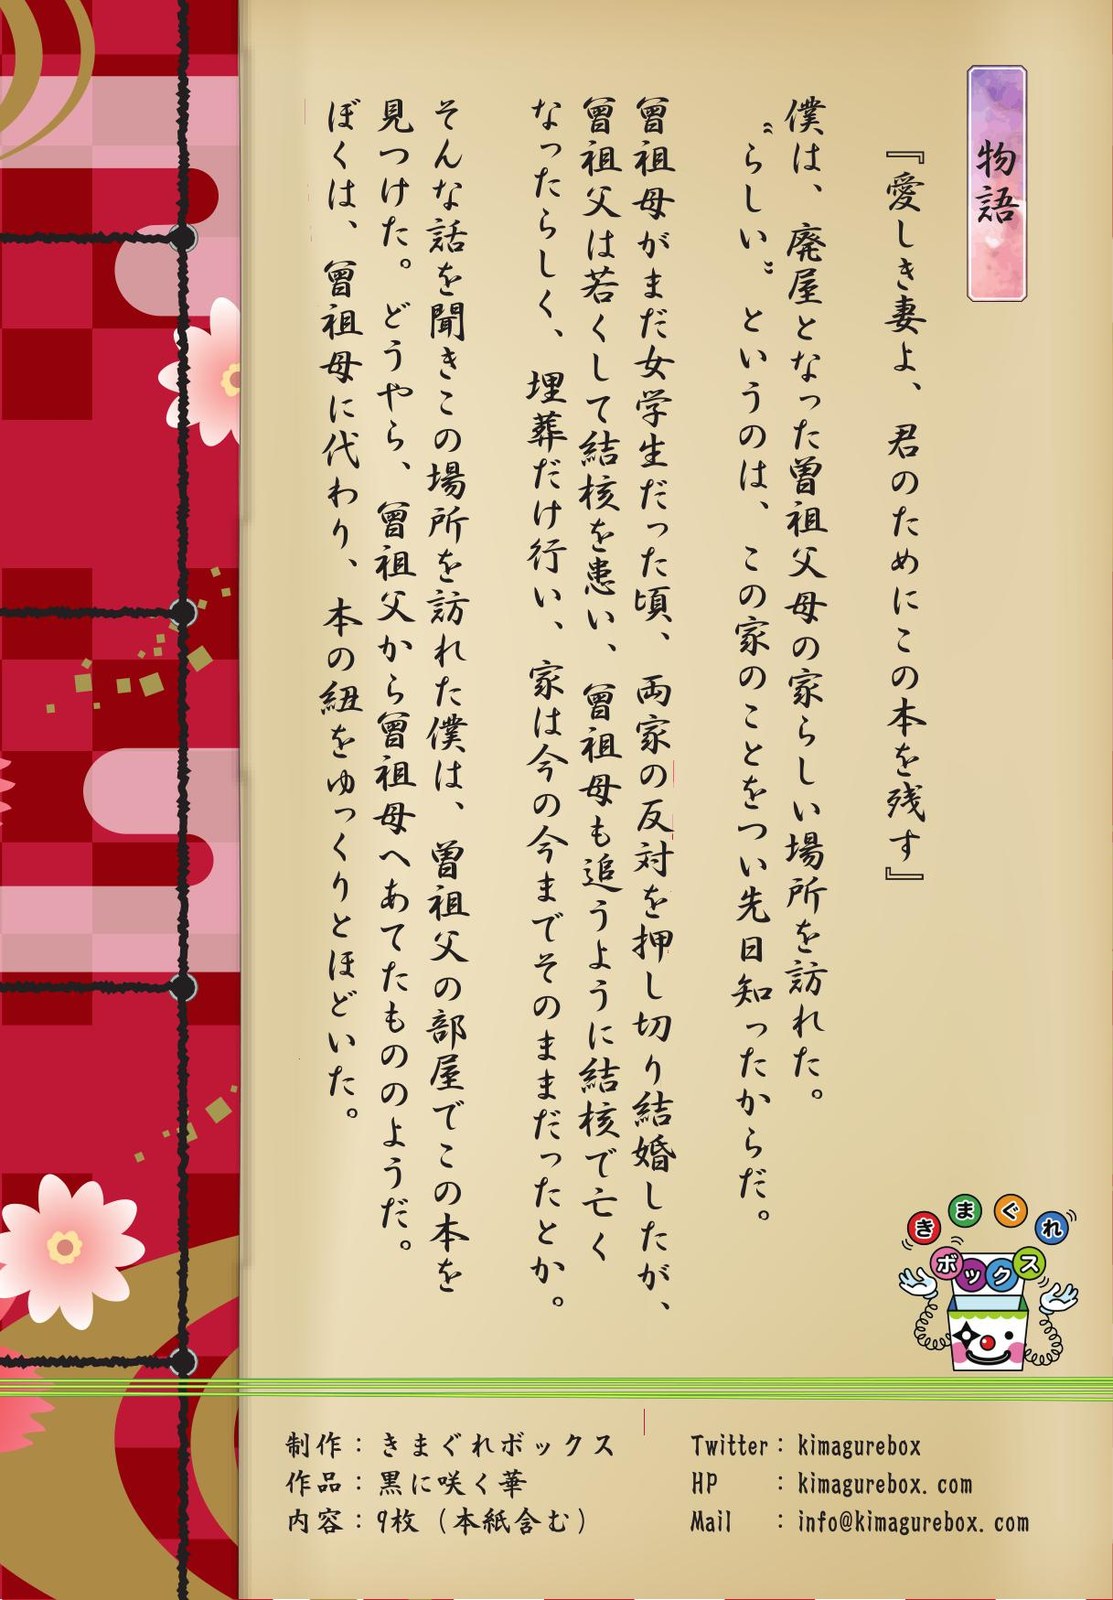 物語
『愛しき妻よ、君のためにこの本を残す』
僕は、廃屋となった曽祖父母の家らしい場所を訪れた。
〝らしい〟というのは、この家のことをつい先日知ったからだ。
曾祖母がまだ女学生だった頃、両家の反対を押し切り結婚したが、
曾祖父は若くして結核を患い、曾祖母も追うように結核で亡く
なったらしく、埋葬だけ行い、家は今の今までそのままだったとか。
そんな話を聞きこの場所を訪れた僕は、曽祖父の部屋でこの本を
見つけた。どうやら、曾祖父から曾祖母へあてたもののようだ。
ぼくは、曾祖母に代わり、本の紐をゆっくりとほどいた。
きまぐれ
ボックス
制作：きまぐれボックス
作品：黒に咲く華
内容：9枚（本紙含む）
Twitter：kimagurebox
HP：kimagurebox.com
Mail：info@kimagurebox.com